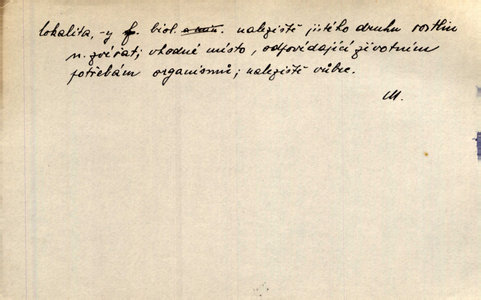 lokalita, -y f. biol. naleziště jistého druhu rostlin
n. zvířat; vhodné místo, odpovídající životním
potřebám organismů; naleziště vůbec.
M.